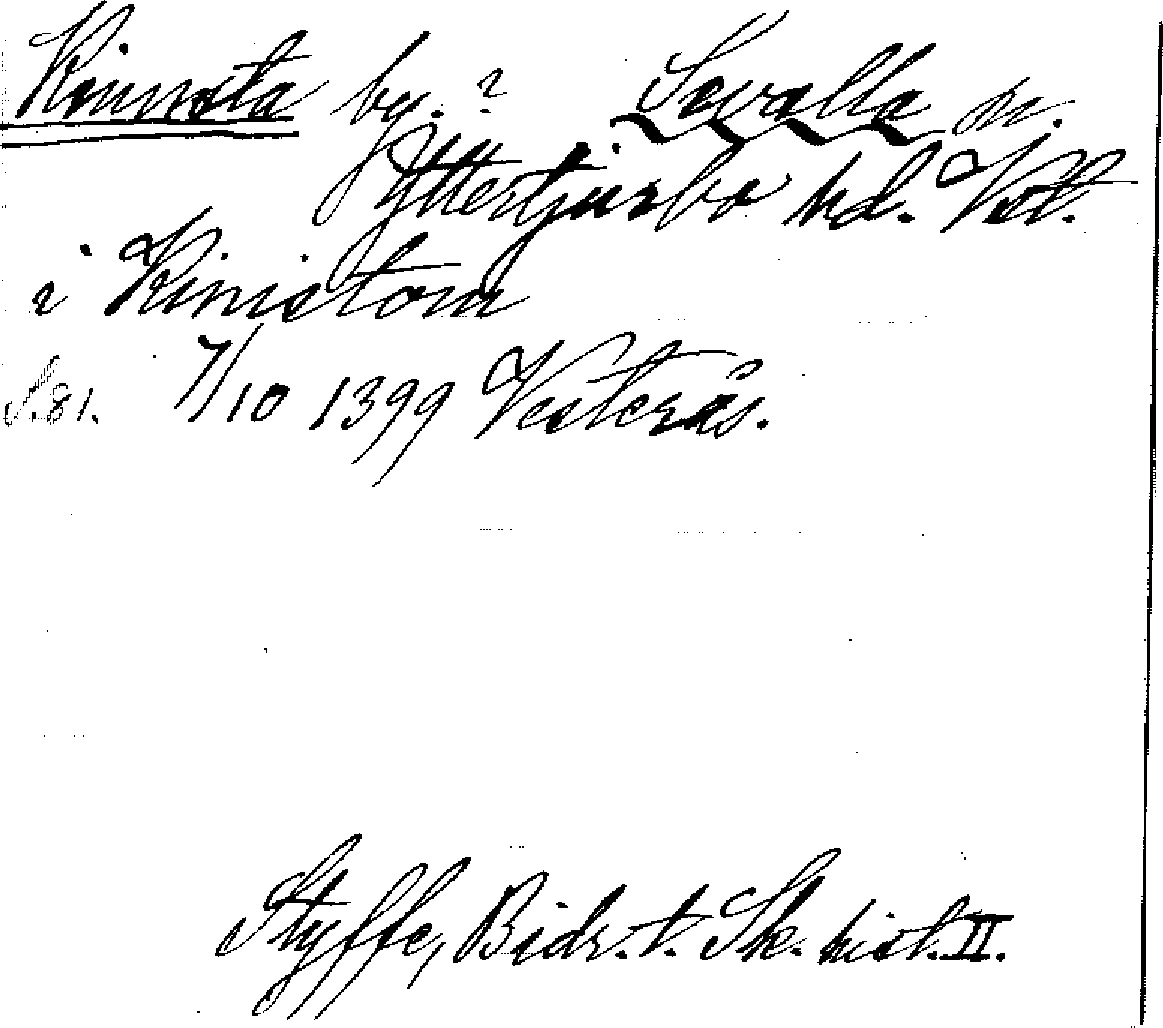 Kinnsta by. ? Sevalla sn.
Yttertjurbo hd. Vstl.
i Kinistom
S. 81. 7/10 1399 Vesterås.
Styffe, Bidr. t. Sk. hist. II.